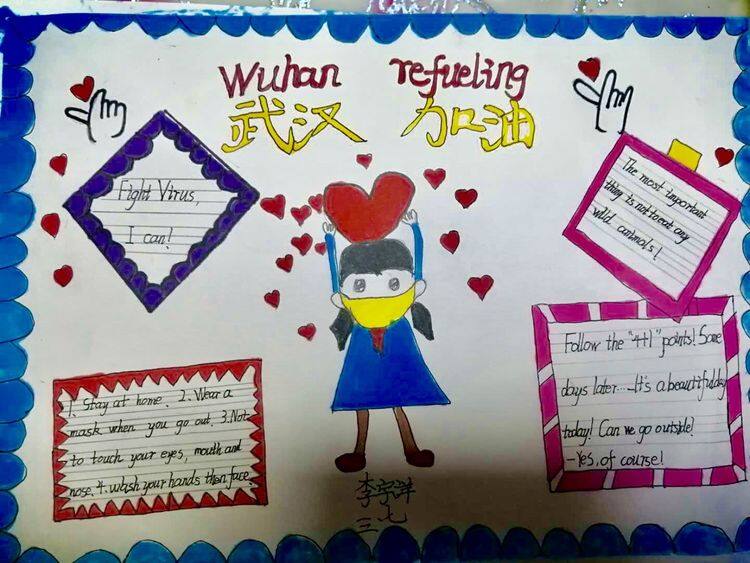 Wuhan refueling
武汉 加油
Fight Virus,
I can!
The most important
thing is not to eat any
wild animals!
1. Stay at home. 2. Wear a
mask when you go out. 3. Not
to touch your eyes, mouth and
nose. 4. wash your hands then face
Follow the "4+1" points! Some
days later.....It's a beautiful day
today! Can we go outside?
-Yes, of course!
李宇洋
三 七